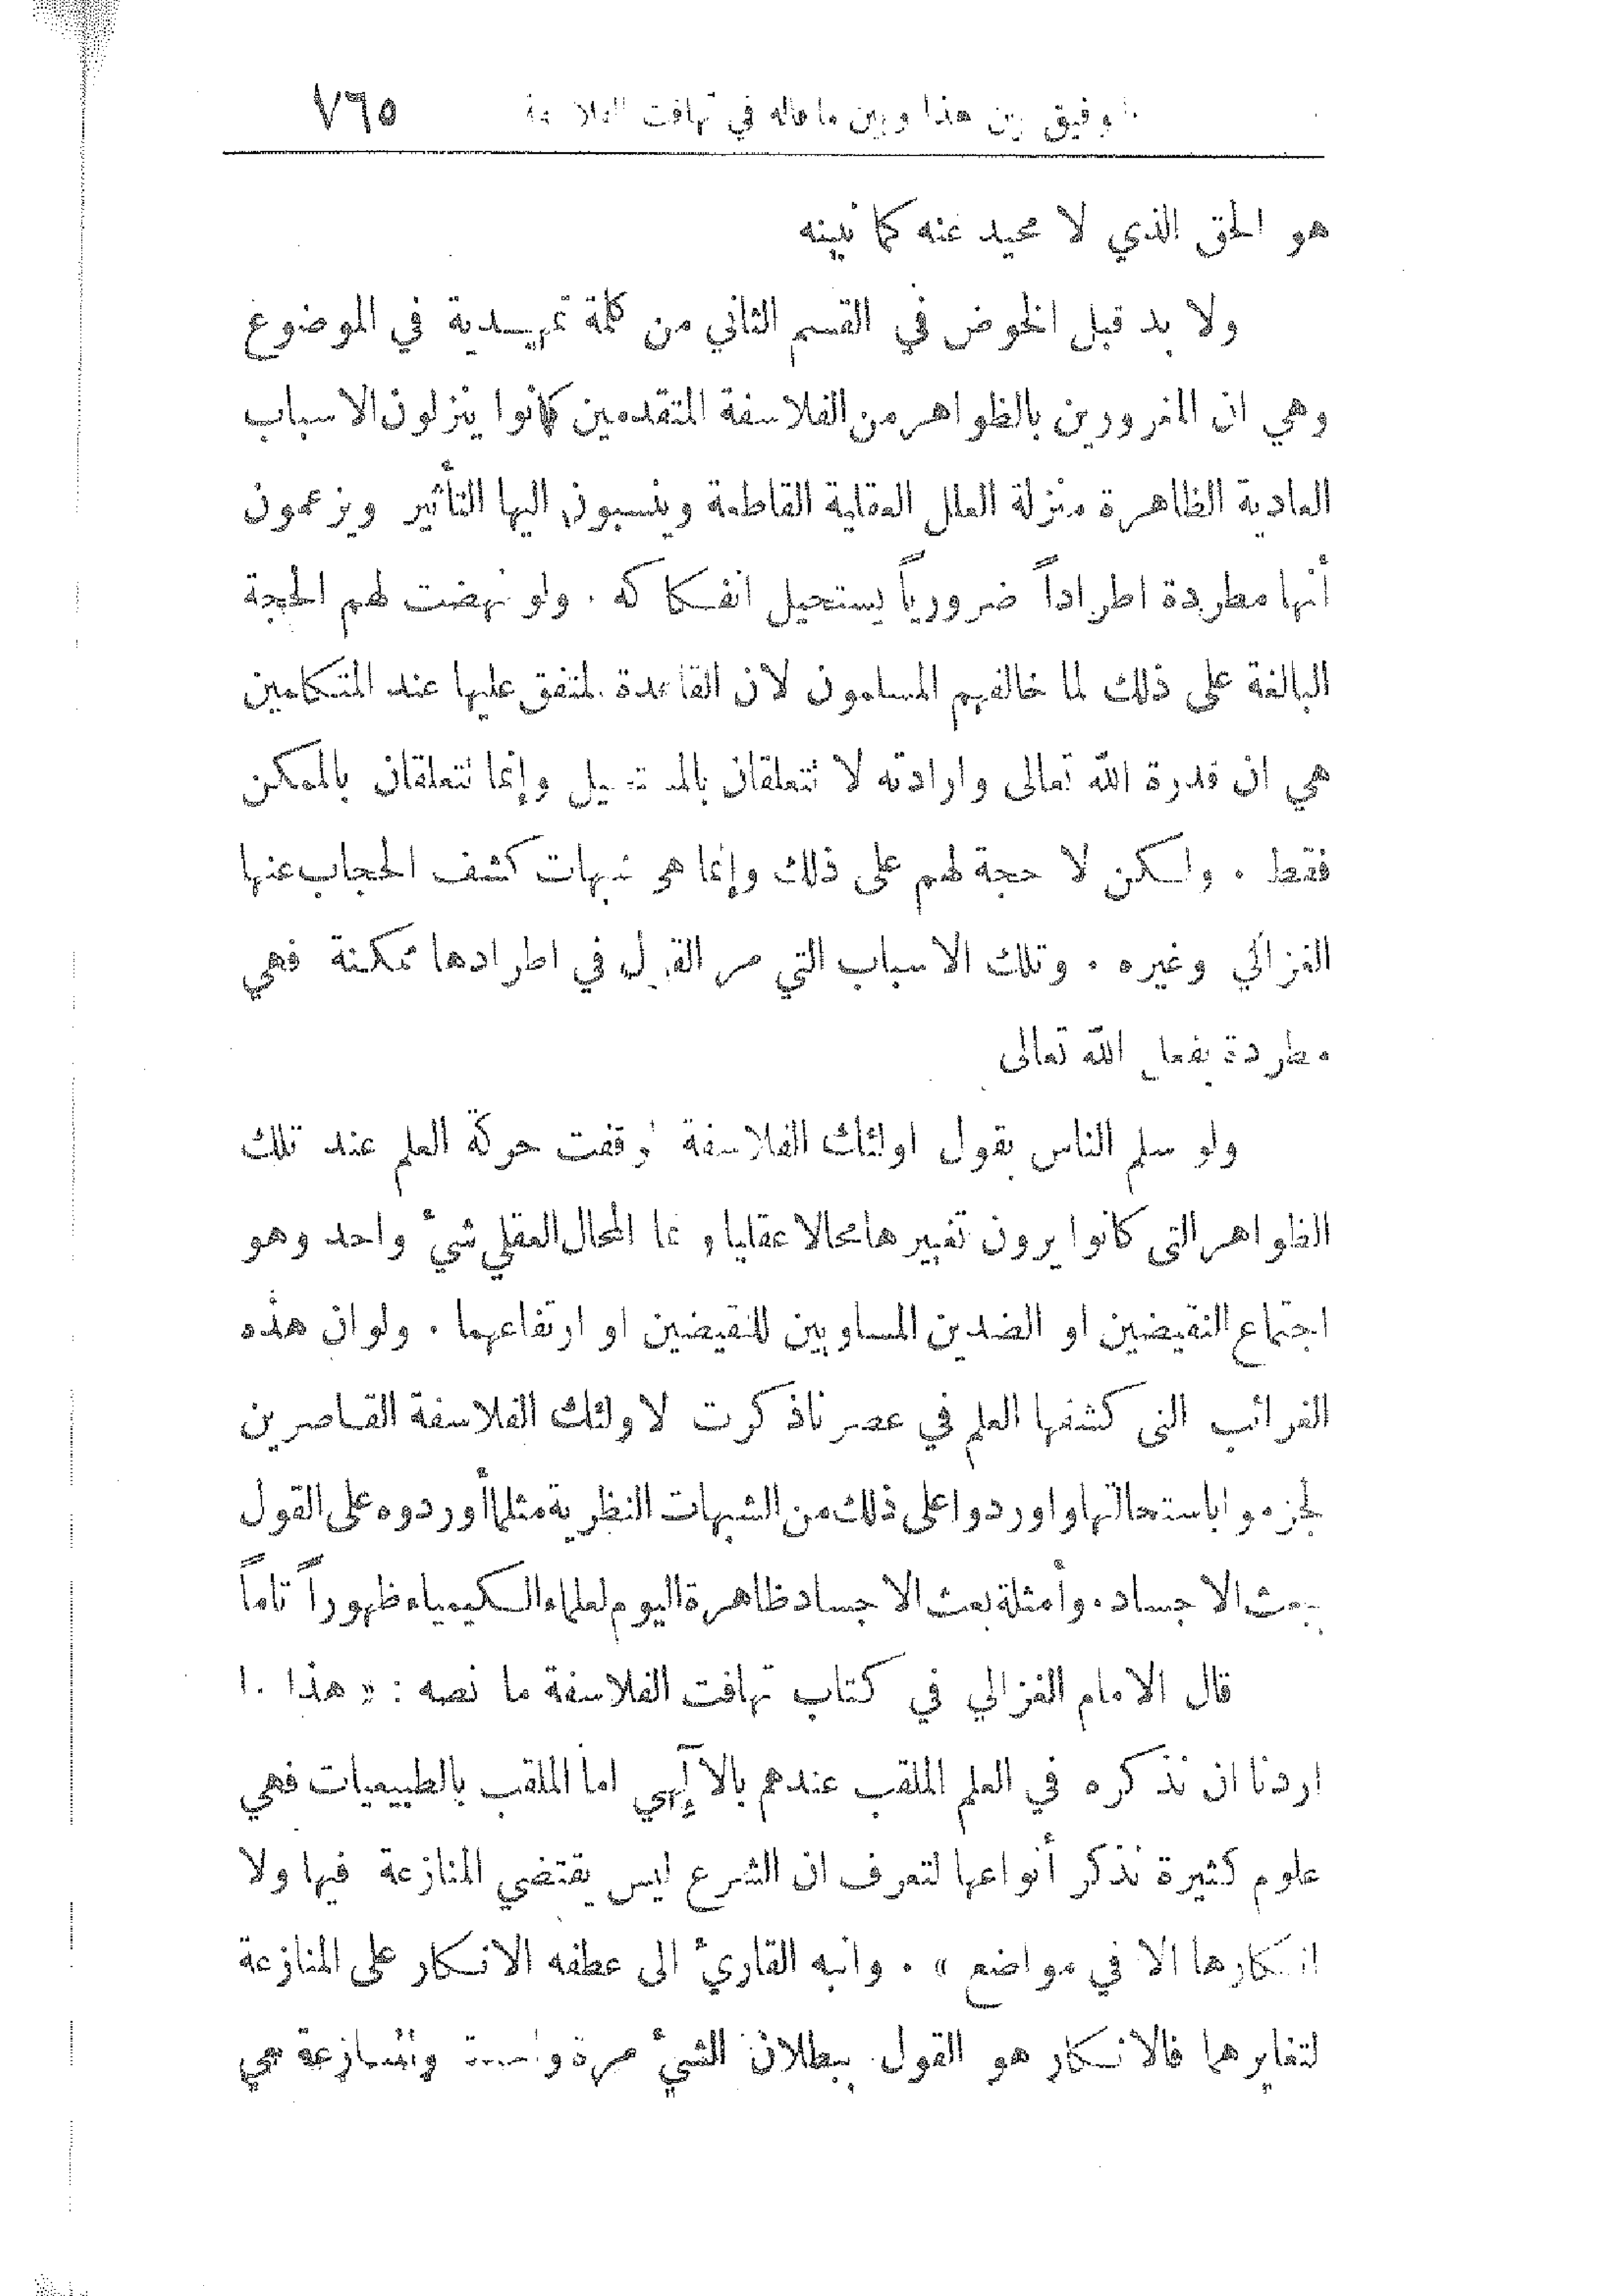 التوفيق بين هذا وبين ما قاله في تهافت الفلاسفة ٧٦٥
هو الحق الذي لا محيد عنه كما نبينه
ولا بد قبل الخوض في القسم الثاني من كلمة تمهيدية في الموضوع
وهي ان المغرورين بالظواهر من الفلاسفة المتقدمين كانوا ينزلون الاسباب
العادية الظاهرة منزلة العلل العقلية القاطعة وينسبون اليها التأثير ويزعمون
أنها مطردة اطراداً ضرورياً يستحيل انفكاكه . ولو نهضت لهم الحجة
البالغة على ذلك لما خالفهم المسلمون لان القاعدة المتفق عليها عند المتكلمين
هي ان قدرة الله تعالى وارادته لا تتعلقان بالمستحيل وإنما تتعلقان بالممكن
فقط . ولكن لا حجة لهم على ذلك وإنما هو شبهات كشف الحجاب عنها
الغزالي وغيره . وتلك الاسباب التي مر القول في اطرادها ممكنة فهي
مطردة بفعل الله تعالى
ولو سلم الناس بقول اولئك الفلاسفة لوقفت حركة العلم عند تلك
الظواهر التي كانوا يرون تغييرها محالا عقليا وإنما المحال العقلي شيء واحد وهو
اجتماع النقيضين او الضدين المساويين للنقيضين او ارتفاعهما . ولو ان هذه
الغرائب التي كشفها العلم في عصرنا ذكرت لاولئك الفلاسفة القاصرين
لجزموا باستحالتها واوردوا على ذلك من الشبهات النظرية مثلما أوردوه على القول
ببعث الاجساد . وأمثلة بعث الاجساد ظاهرة اليوم لعلماء الكيمياء ظهوراً تاماً
قال الامام الغزالي في كتاب تهافت الفلاسفة ما نصه : « هذا ما
اردنا ان نذكره في العلم الملقب عندهم بالالٓهي اما الملقب بالطبيعيات فهي
علوم كثيرة نذكر أنواعها لتعرف ان الشرع ليس يقتضي المنازعة فيها ولا
انكارها الا في مواضع » . وانبه القاريء الى عطفه الانكار على المنازعة
لتغايرهما فالانكار هو القول ببطلان الشيء مرة واحدة والمنازعة هي